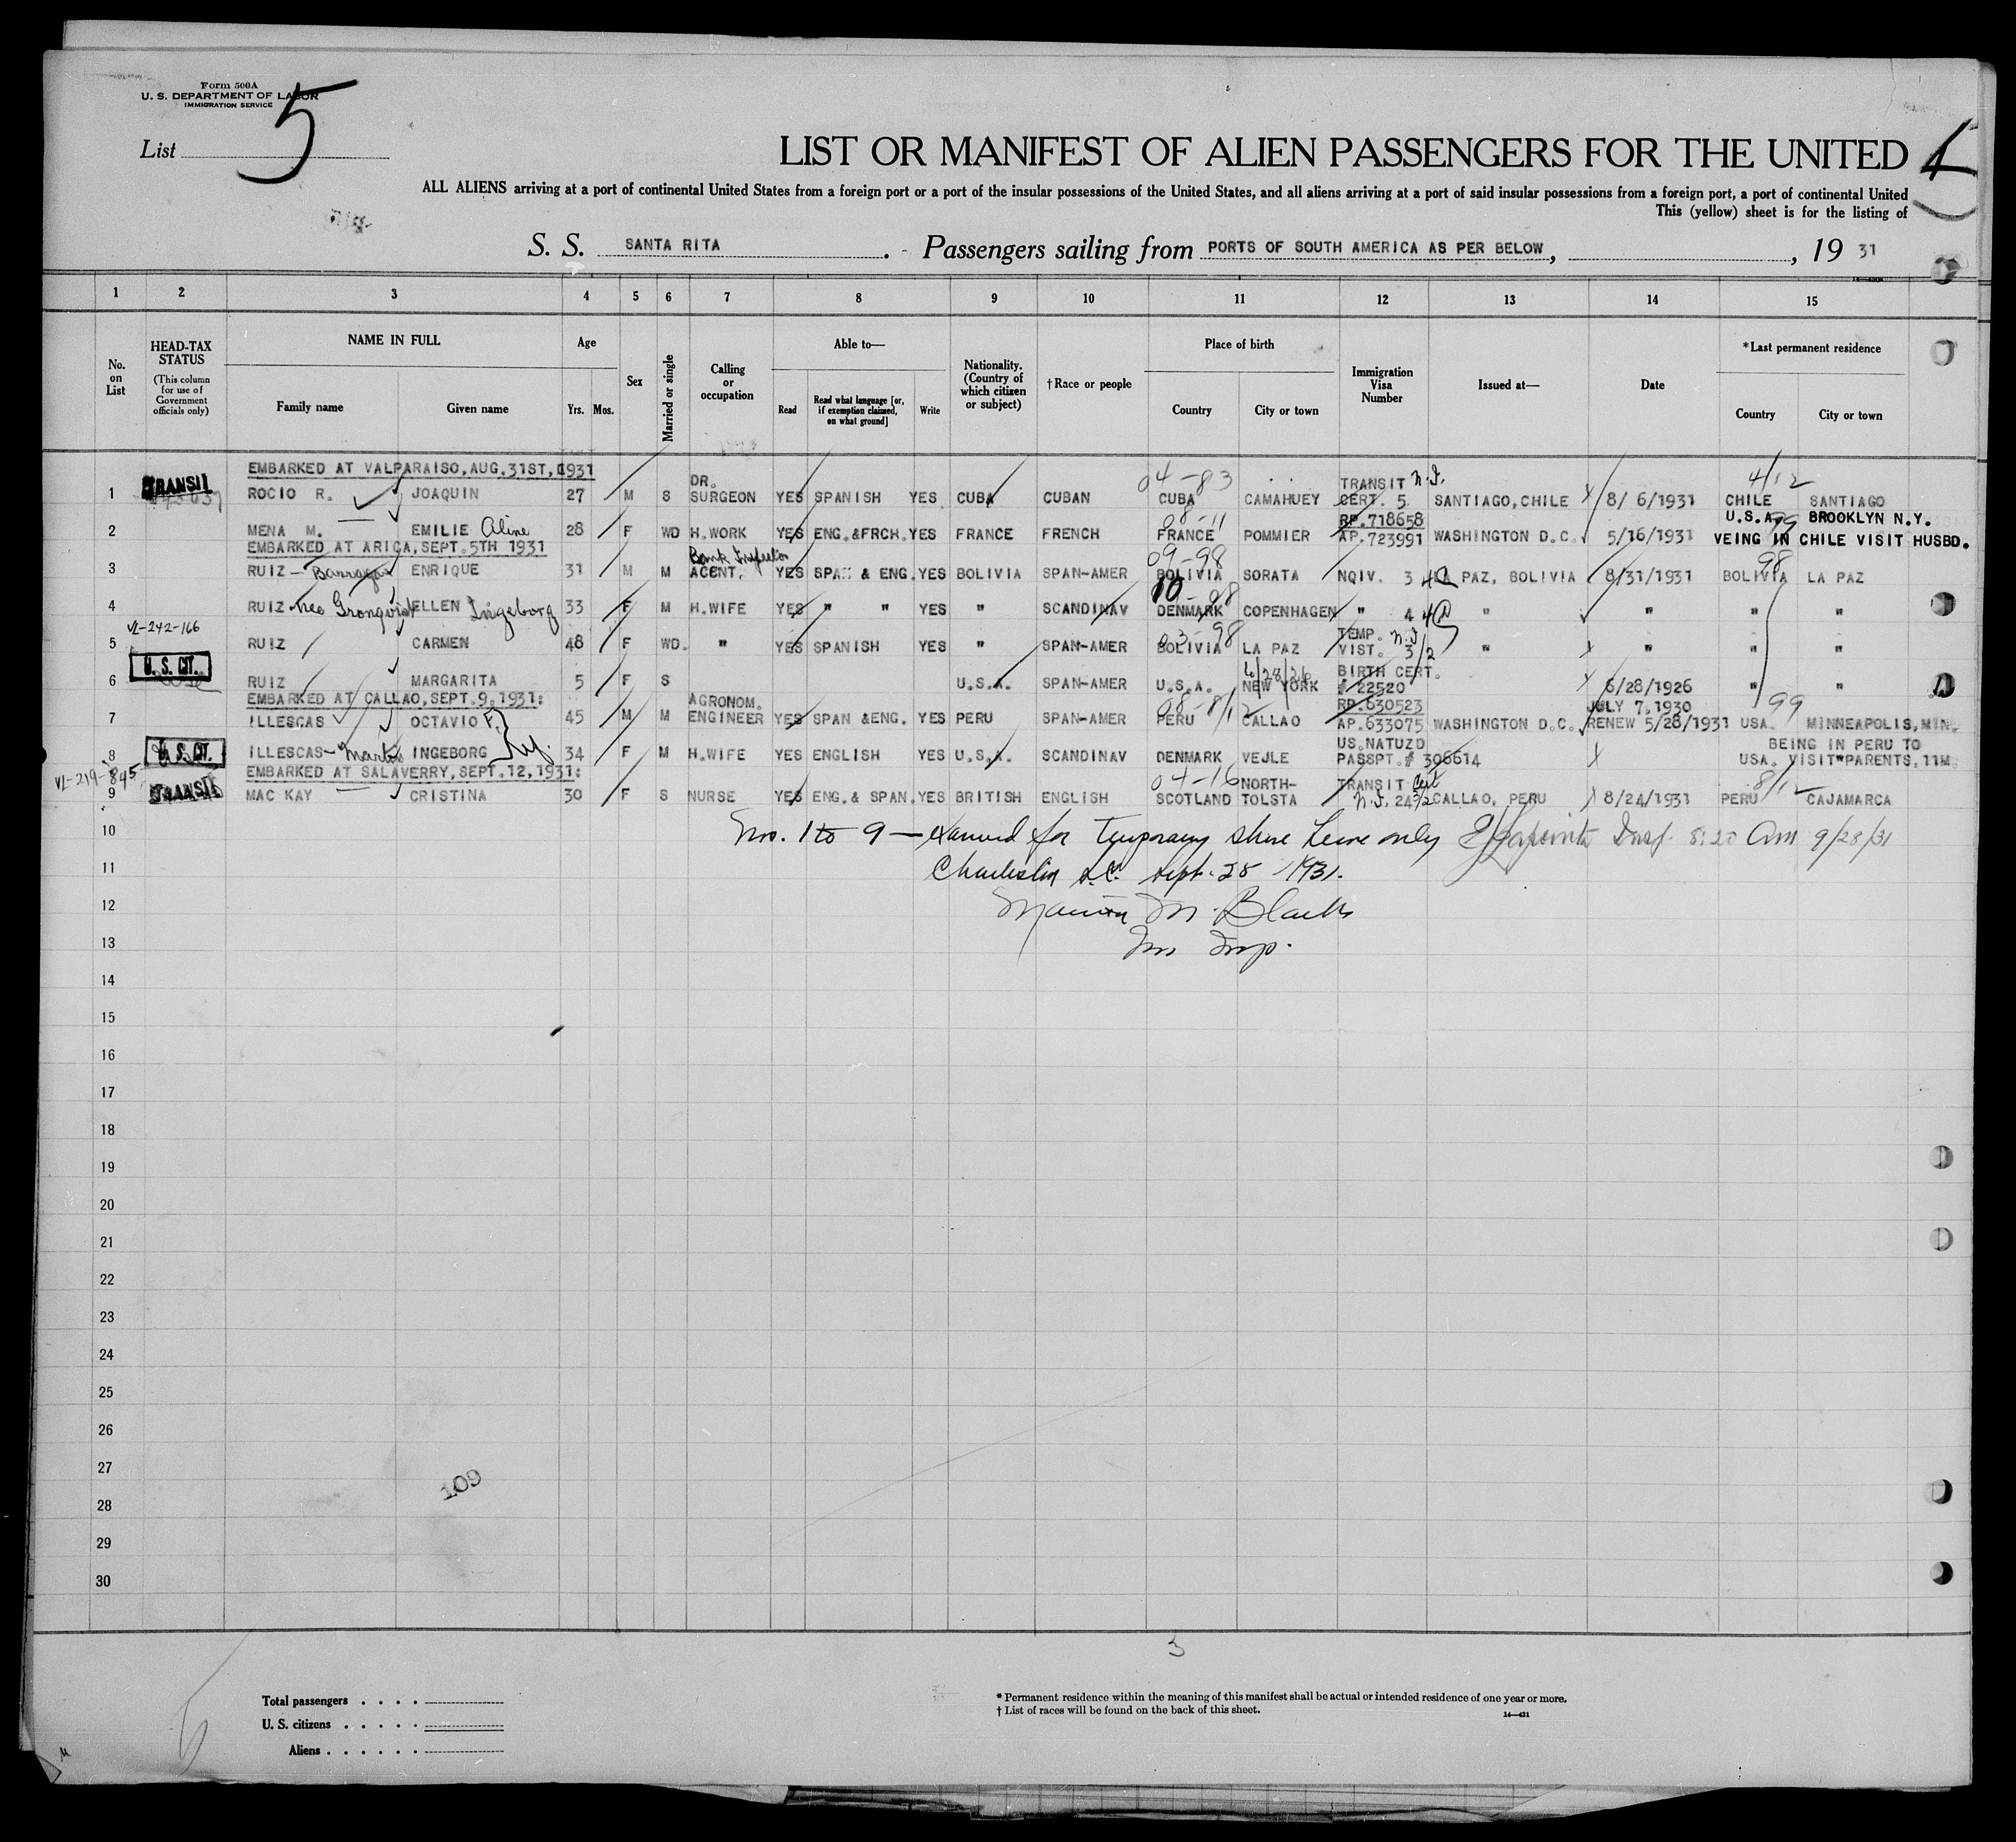 Form 500A
U. S. DEPARTMENT OF LABOR
IMMIGRATION SERVICE
List 5
LIST OR MANIFEST OF ALIEN PASSENGERS FOR THE UNITED
ALL ALIENS arriving at a port of continental United States from a foreign port or a port of the insular possessions of the United States, and all aliens arriving at a port of said insular possessions from a foreign port, a port of continental United
This (yellow) sheet is for the listing of
S. S. SANTA RITA . Passengers sailing from PORTS OF SOUTH AMERICA AS PER BELOW, , 19 31
1 2 3 4 5 6 7 8 9 10 11 12 13 14 15
No. on List
HEAD-TAX STATUS
(This column for use of Government officials only)
NAME IN FULL
Family name Given name
Age
Yrs. Mos.
Sex
Married or single
Calling or occupation
Able to—
Read
Read what language [or, if exemption claimed, on what ground]
Write
Nationality. (Country of which citizen or subject)
† Race or people
Place of birth
Country City or town
Immigration Visa Number
Issued at—
Date
*Last permanent residence
Country City or town
EMBARKED AT VALPARAISO, AUG. 31ST, 1931 DR. 04-83 TRANSIT N.I. 4/12
1 TRANSIT ROCIO R. JOAQUIN 27 M S SURGEON YES SPANISH YES CUBA CUBAN CUBA CAMAHUEY CERT. 5. SANTIAGO, CHILE 8/ 6/1931 CHILE SANTIAGO
08-11 RP.718658 U.S.A. 99 BROOKLYN N.Y.
2 MENA M. EMILIE Aline 28 F WD H.WORK YES ENG.&FRCH. YES FRANCE FRENCH FRANCE POMMIER AP.723991 WASHINGTON D.C. 5/16/1931 VEING IN CHILE VISIT HUSBD.
EMBARKED AT ARICA, SEPT. 5TH 1931 Bank Inspector 09-98 98
3 RUIZ - Barragan ENRIQUE 31 M M ACCNT. YES SPAN & ENG. YES BOLIVIA SPAN-AMER BOLIVIA SORATA NQIV. 3 LA PAZ, BOLIVIA 8/31/1931 BOLIVIA LA PAZ
10 - 98
4 RUIZ nee Gronqvist ELLEN Ingeborg 33 F M H.WIFE YES " " YES " SCANDINAV DENMARK COPENHAGEN " 4 " " " "
VL-242-166 03-98 TEMP. N.I.
5 RUIZ CARMEN 48 F WD. " YES SPANISH YES " SPAN-AMER BOLIVIA LA PAZ VIST. 3/2 " " " "
U. S. CIT. 6/28/26 BIRTH CERT.
6 RUIZ MARGARITA 5 F S U.S.A. SPAN-AMER U.S.A. NEW YORK # 22520 6/28/1926 " "
EMBARKED AT CALLAO, SEPT. 9, 1931: AGRONOM. 08-8/12 RP.630523 JULY 7, 1930 99
7 ILLESCAS OCTAVIO F. 45 M M ENGINEER YES SPAN &ENG. YES PERU SPAN-AMER PERU CALLAO AP.633075 WASHINGTON D.C. RENEW 5/28/1931 USA. MINNEAPOLIS, MIN.
U. S. CIT. US.NATUZD BEING IN PERU TO
8 ILLESCAS - INGEBORG 34 F M H.WIFE YES ENGLISH YES U.S.A. SCANDINAV DENMARK VEJLE PASSPT.# 306614 USA. VISIT PARENTS, 11M.
VL-219-845 EMBARKED AT SALAVERRY, SEPT. 12, 1931: 04-16 NORTH- TRANSIT Cert 8/12
9 TRANSIT MAC KAY CRISTINA 30 F S NURSE YES ENG.& SPAN. YES BRITISH ENGLISH SCOTLAND TOLSTA N.I. 24 3/2 CALLAO, PERU 8/24/1931 PERU CAJAMARCA
10 Nos. 1 to 9 — examined for temporary shore leave only Insp. 8:20 am 9/28/31
11 Charleston S.C. Sept. 28 1931.
12 M. Black
13 Insp.
14
15
16
17
18
19
20
21
22
23
24
25
26
27
109
28
29
30
3
Total passengers . . . .
U. S. citizens . . . . .
Aliens . . . . . .
* Permanent residence within the meaning of this manifest shall be actual or intended residence of one year or more.
† List of races will be found on the back of this sheet.
14—431